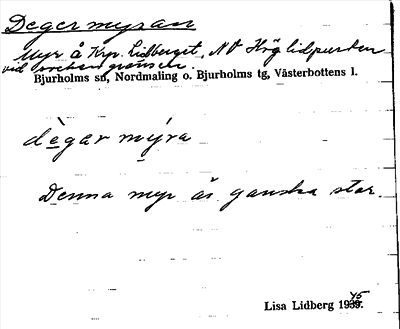 Degermyran
Myr å Krp. Lidberget, NV Höglidpunten
vid sockengränsen.
Bjurholms sn, Nordmaling o. Bjurholms tg, Västerbottens l.
dègar mýra
Denna myr är ganska stor.
Lisa Lidberg 1945.